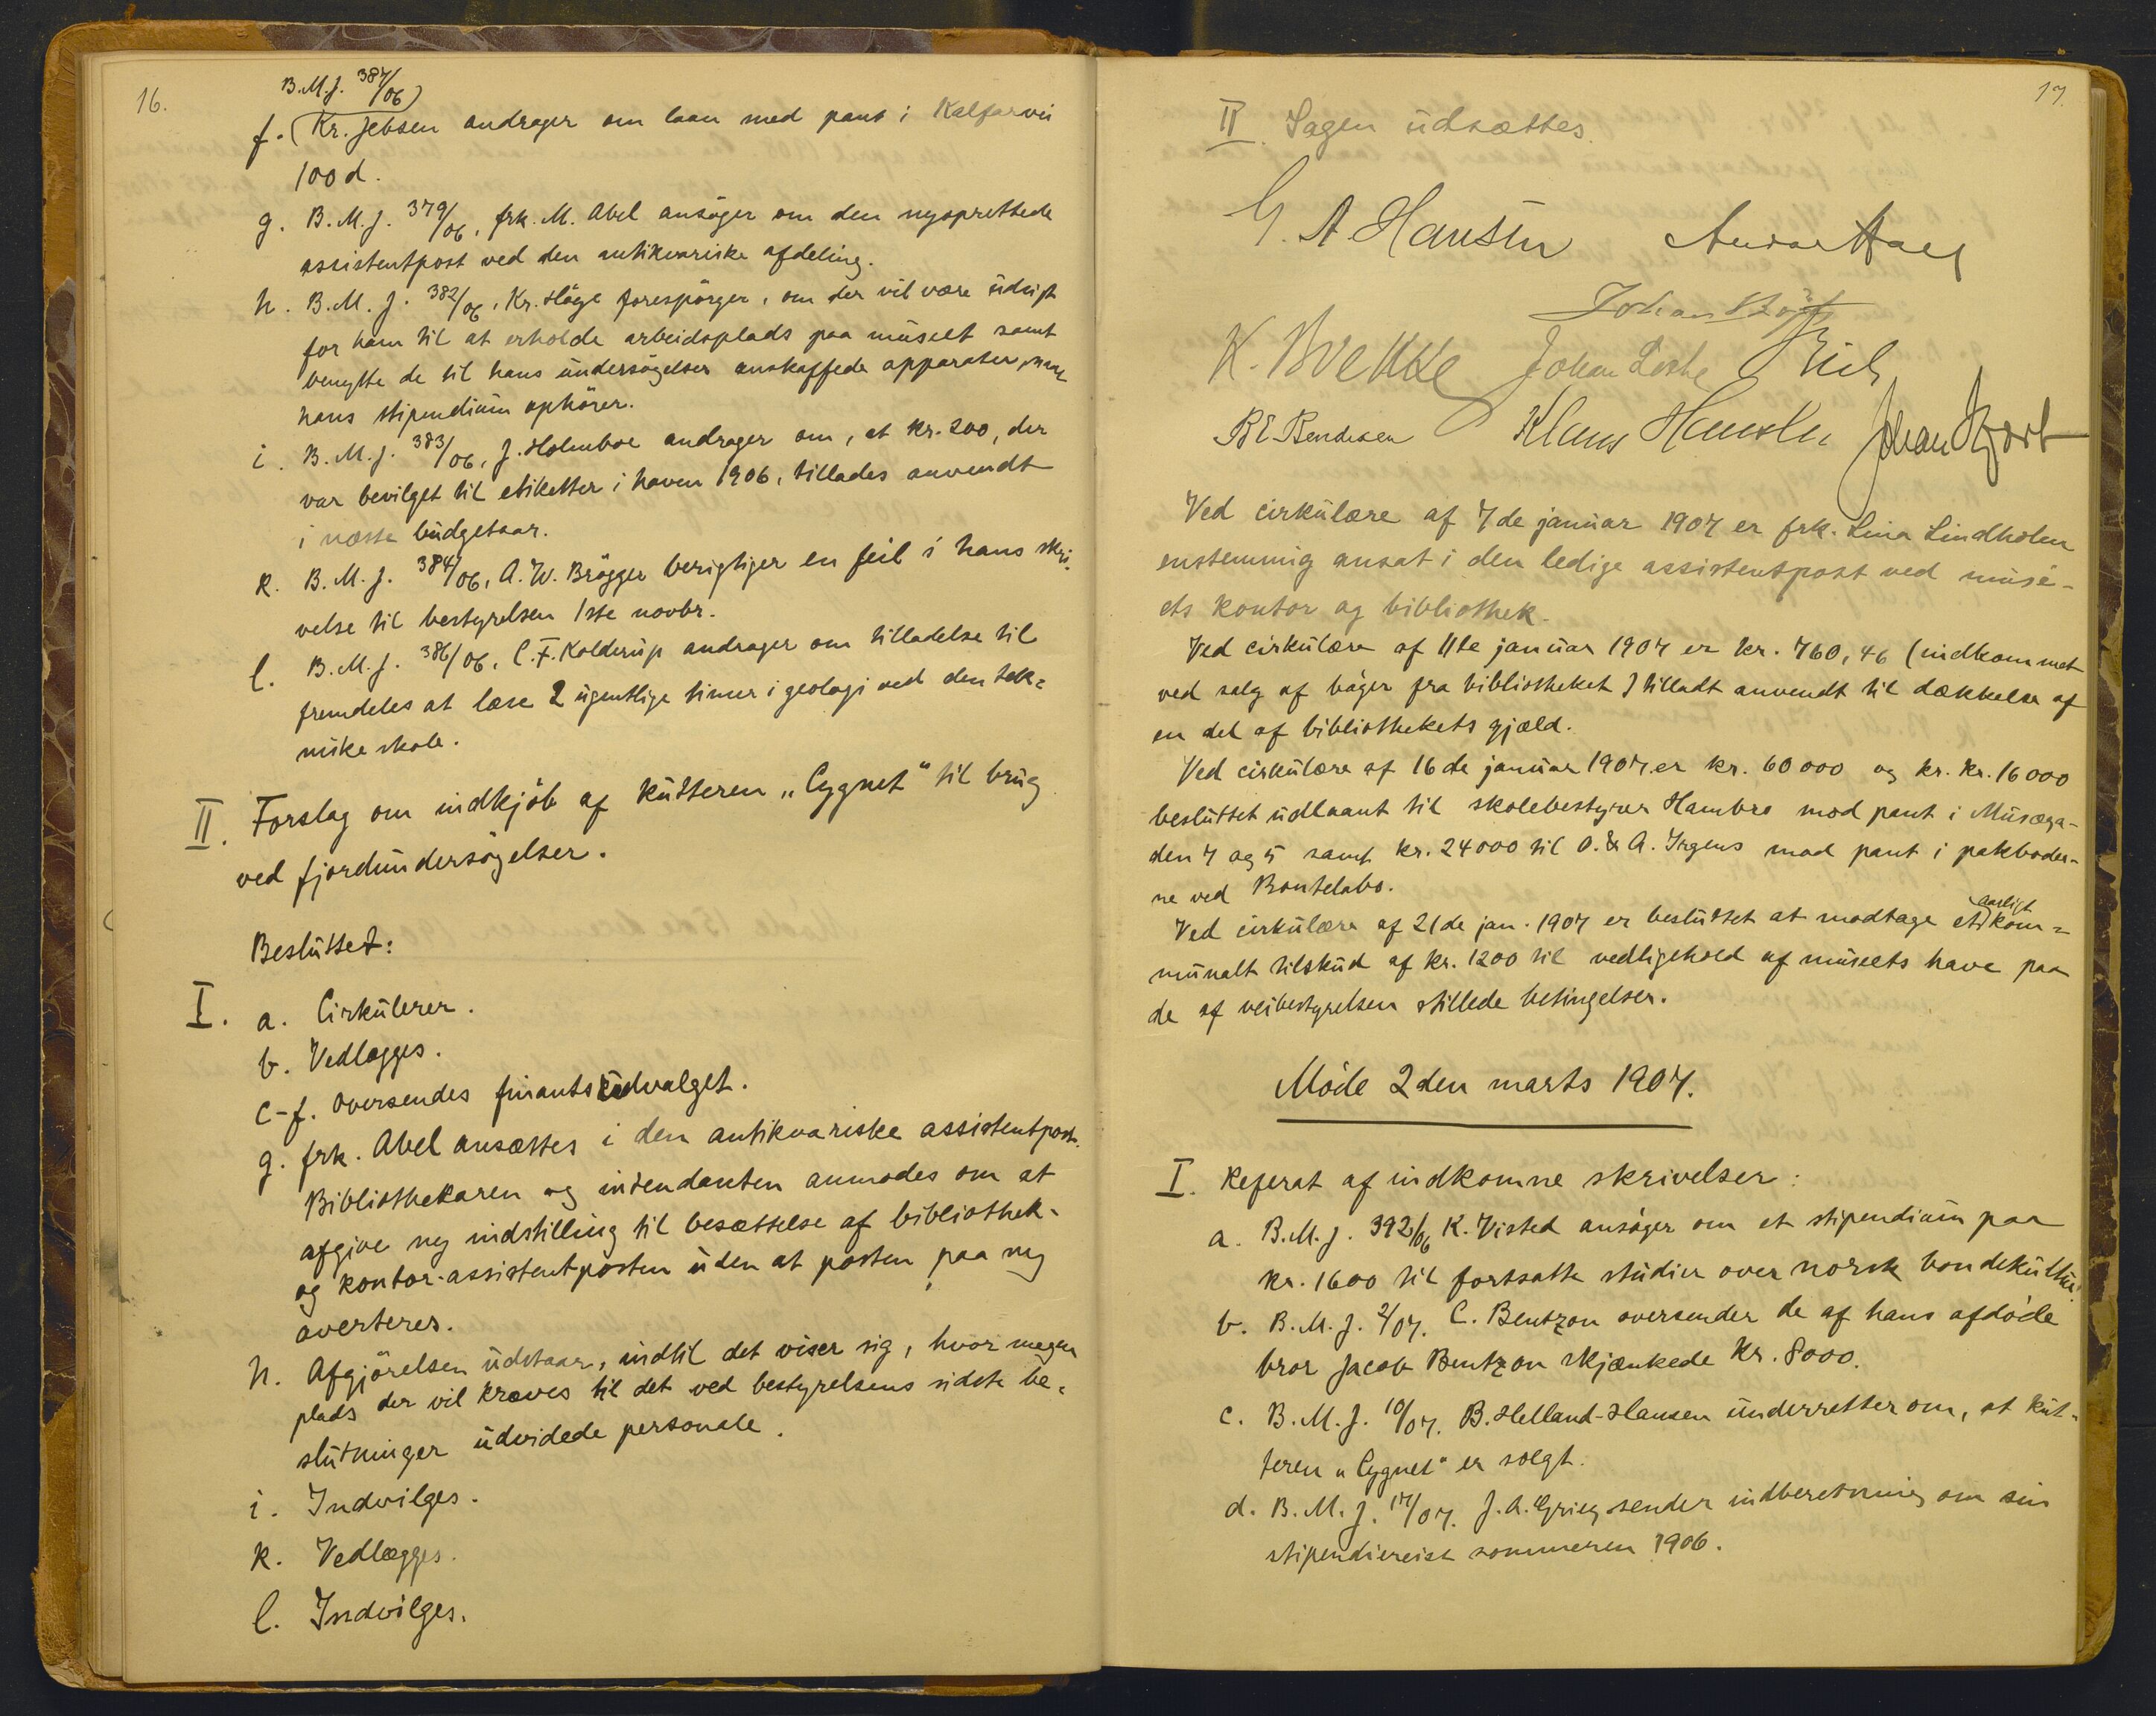 16.
B.M.J. 387/06)
f. (Kr. Jebsen andrager om laan med pant i Kalfarvei
100 d.
g. B.M.J. 379/06, frk. M. Abel ansöger om den nyoprettede
assistentpost ved den antikvariske afdeling.
h. B.M.J. 382/06, Kr. Höye forespörger, om der vil være udsigt
for ham til at erholde arbeidsplads paa museet samt
benytte de til hans undersögelser anskaffede apparater, naar
hans stipendium ophörer.
i. B.M.J. 383/06, J. Holmboe andrager om, at kr. 200, der
var bevilget til etiketter i haven 1906, tillades anvendt
i næste budgetaar.
k. B.M.J. 384/06, A.W. Brögger berigtiger en feil i hans skri-
velse til bestyrelsen 1ste novbr.
l. B.M.J. 386/06, C.F. Kolderup andrager om tilladelse til
fremdeles at læse 2 ugentlige timer i geologi ved den tek-
niske skole.
II. Forslag om indkjöb af kutteren „Cygnet" til brug
ved fjordundersögelser.
Besluttet:
I. a. Cirkulerer.
b. Vedlægges.
c-f. Oversendes finantsudvalget.
g. frk. Abel ansættes i den antikvariske assistentpost.
Bibliothekaren og intendanten anmodes om at
afgive ny indstilling til besættelse af bibliothek-
og kontor-assistentposten uden at posten paa ny
averteres.
h. Afgjörelsen udstaar, indtil det viser sig, hvor megen
plads der vil kræves til det ved bestyrelsens sidste be-
slutninger udvidede personale.
i. Indvilges.
k. Vedlægges.
l. Indvilges.
17.
II Sagen udsættes.
G. A Hansen
Johan
K. Brekke Johan Lothe
B E Bendixen Klaus Hanssen Johan Hjort
Ved cirkulære af 7de januar 1907 er frk. Lina Lindholm
enstemmig ansat i den ledige assistentpost ved musé-
ets kontor og bibliothek.
Ved cirkulære af 11te januar 1907 er kr. 760,46 (indkommet
ved salg af böger fra bibliotheket) tilladt anvendt til dækkelse af
en del af bibliothekets gjæld.
Ved cirkulære af 16de januar 1907 er kr. 60000 og kr. kr. 16000
besluttet udlaant til skolebestyrer Hambro mod pant i Musæga-
den 7 og 5 samt kr. 24000 til O. & A. Irgens mod pant i pakboder-
ne ved Bontelabo.
Ved cirkulære af 21de jan. 1907 er besluttet at modtage et aarligt kom-
munalt tilskud af kr. 1200 til vedligehold af museets have paa
de af veibestyrelsen stillede betingelser.
Möde 2den marts 1907.
I. Referat af indkomne skrivelser:
a. B.M.J. 392/06 K. Visted ansöger om et stipendium paa
kr. 1600 til fortsatte studier over norsk bondekultur.
b. B.M.J. 2/07. C. Bentzon oversender de af hans afdöde
bror Jacob Bentzon skjænkede kr. 8000.
c. B.M.J. 10/07. B. Helland-Hansen underretter om, at kut-
teren „Cygnet" er solgt.
d. B.M.J. 17/07. J.A. Grieg sender indberetning om sin
stipendiereise sommeren 1906.